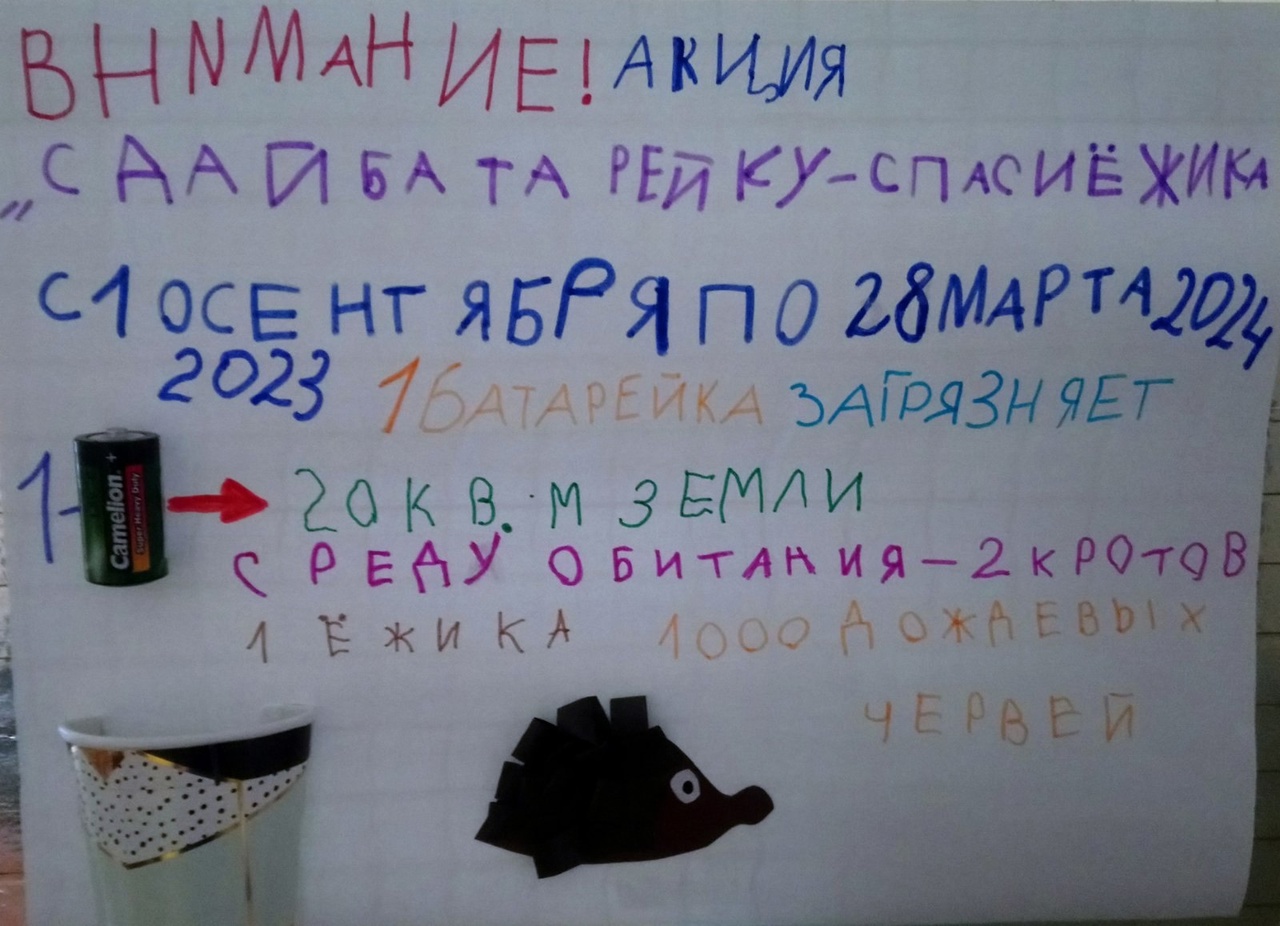 ВНNМАНИЕ! АКЦИЯ
„СДАЙ БАТАРЕЙКУ-СПАСИ ЁЖИКА
С 1 ОСЕНТЯБРЯ ПО 28 МАРТА 2024
2023 1 БАТАРЕЙКА ЗАГРЯЗНЯЕТ
1- Camelion + Super Heavy Duty 20 КВ. М ЗЕМЛИ
СРЕДУ ОБИТАНИЯ-2 КРОТОВ
1 ЁЖИКА 1000 ДОЖДЕВЫХ
ЧЕРВЕЙ